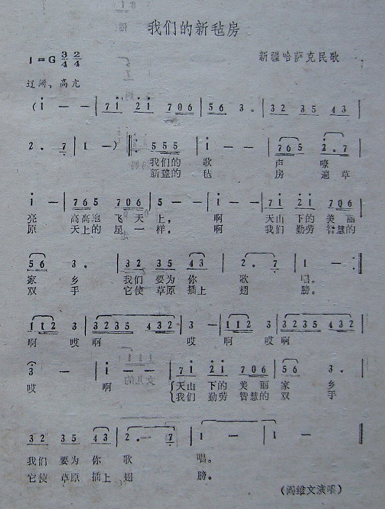 我们的新毡房
1=G 3/4 2/4
新疆哈萨克民歌
辽阔、高亢
(i - - | 7i 2i 706 | 56 3. | 32 35 43 |
2. 7 | 1 -) ‖: 555 i - | 765 2.7 |
我们的 歌 声 嘹
新毡的 毡 房 遍草
i - | 765 706 | 5 - | i - | 7i 2i 706 |
亮 高高地 飞 天上， 啊 天山 下的 美丽
原 天上的 星 一样， 啊 我们 勤劳 智慧的
56 3. | 32 35 43 | 2. 7 | 1 - |
家 乡 我们 要为 你 歌 唱。
双 手 它使 草原 插上 翅 膀。
112 3 | 3235 432 | 3 - | 112 3 | 3235 432 |
啊 哎 啊 哎 啊 哎 啊
3 - | i - - | 7i 2i 706 | 56 3. |
哎 啊 天山 下的 美丽 家 乡
我们 勤劳 智慧的 双 手
32 35 43 | 2. 7 | 1 - | 1 - ‖
我们 要为 你 歌 唱。
它使 草原 插上 翅 膀。
(阎维文演唱)